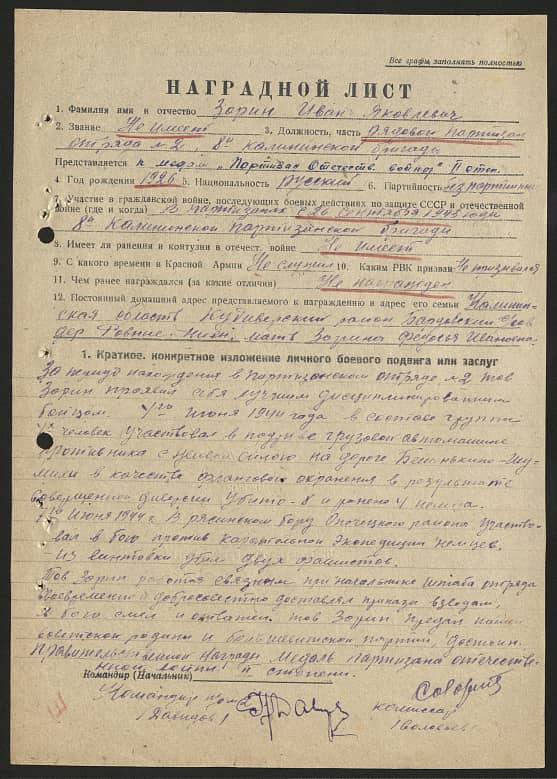 Все графы заполнять полностью
НАГРАДНОЙ ЛИСТ
1. Фамилия имя и отчество Зорин Иван Яковлевич
2. Звание Не имеет 3. Должность, часть рядовой партизан
отряда №2, 8й Калининской бригады
Представляется к медали „Партизан Отечеств. войны" II степ.
4. Год рождения 1926 5. Национальность Русский 6. Партийность безпартийн
7. Участие в гражданской войне, последующих боевых действиях по защите СССР и отечественной
войне (где и когда) В партизанах с 26 сентября 1943 года
8й Калининской Партизанской бригады
8. Имеет ли ранения и контузии в отечест. войне Не имеет
9. С какого времени в Красной Армии Не служил 10. Каким РВК призван Не призывался
11. Чем ранее награждался (за какие отличия) Не награжден
12. Постоянный домашний адрес представляемого к награждению и адрес его семьи Калинин-
ская область Кудеверский район
дер мать Зорина Федосья Ивановна
1. Краткое, конкретное изложение личного боевого подвига или заслуг
За период нахождения в партизанском отряде №2 тов
Зорин проявил себя лучшим дисциплинированным
бойцом. июня 1944 года в составе группы
человек участвовал в подрыве грузовой автомашины
противника с живой силою на дороге Бешенькино-Шу-
мили в качестве флангового охранения в результате
совершенной диверсии убито-8 и ранено 4 немца.
июня 1944 г. В рясинском бору Опочецкого района участво-
вал в бою против карательной экспедиции немцев.
Из винтовки убил двух фашистов.
Тов Зорин работая связным при начальнике штаба отряда
своевременно и добросовестно доставлял приказы взводам,
в бою смел и отважен тов Зорин предан нашей
советской родины и большевитской партии, достоин
Правительственной награды Медаль партизана отечестве-
нной войны II степени.
Командир (Начальник)
Командир
/Давыдов/
комиссар